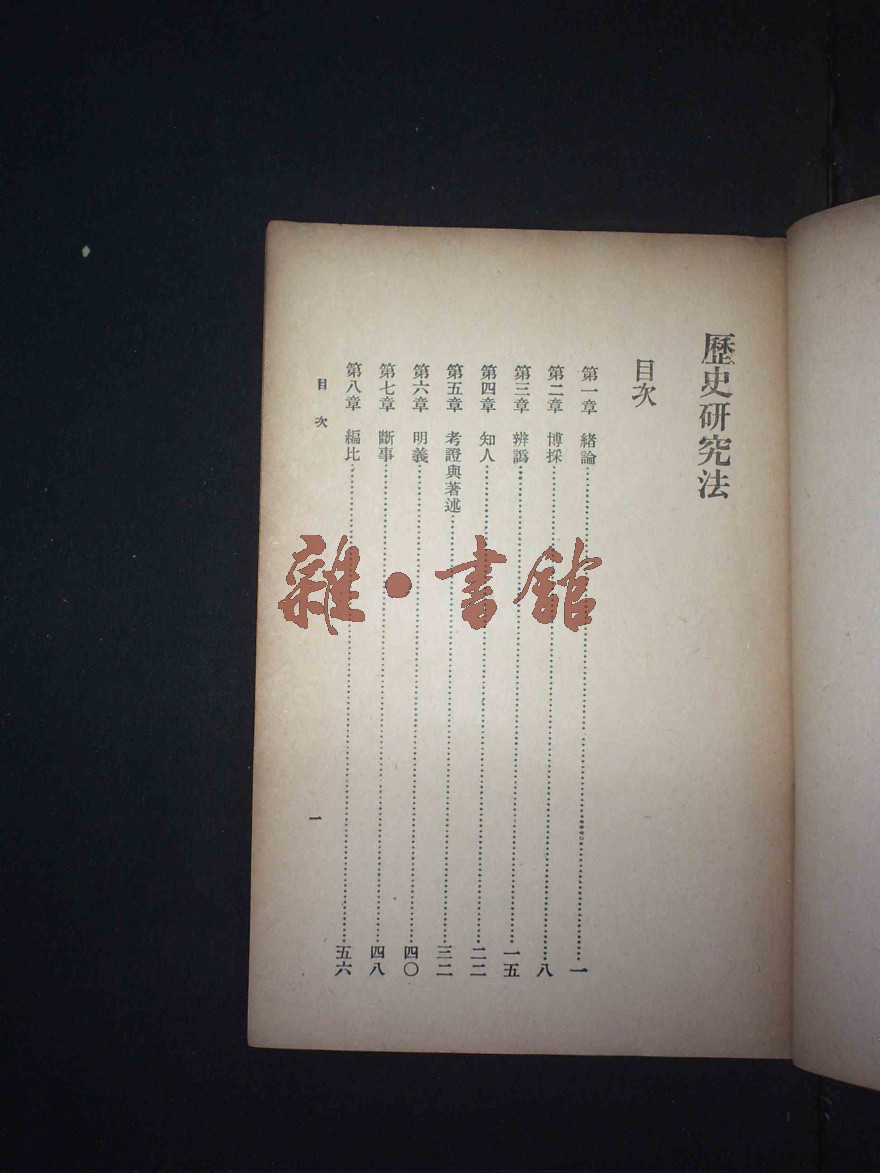 歷史研究法
目次
第一章 緒論……一
第二章 博採……八
第三章 辨譌……一五
第四章 知人……二二
第五章 考證與著述……三二
第六章 明義……四〇
第七章 斷事……四八
第八章 編比……五六
目次 一
雜·書館